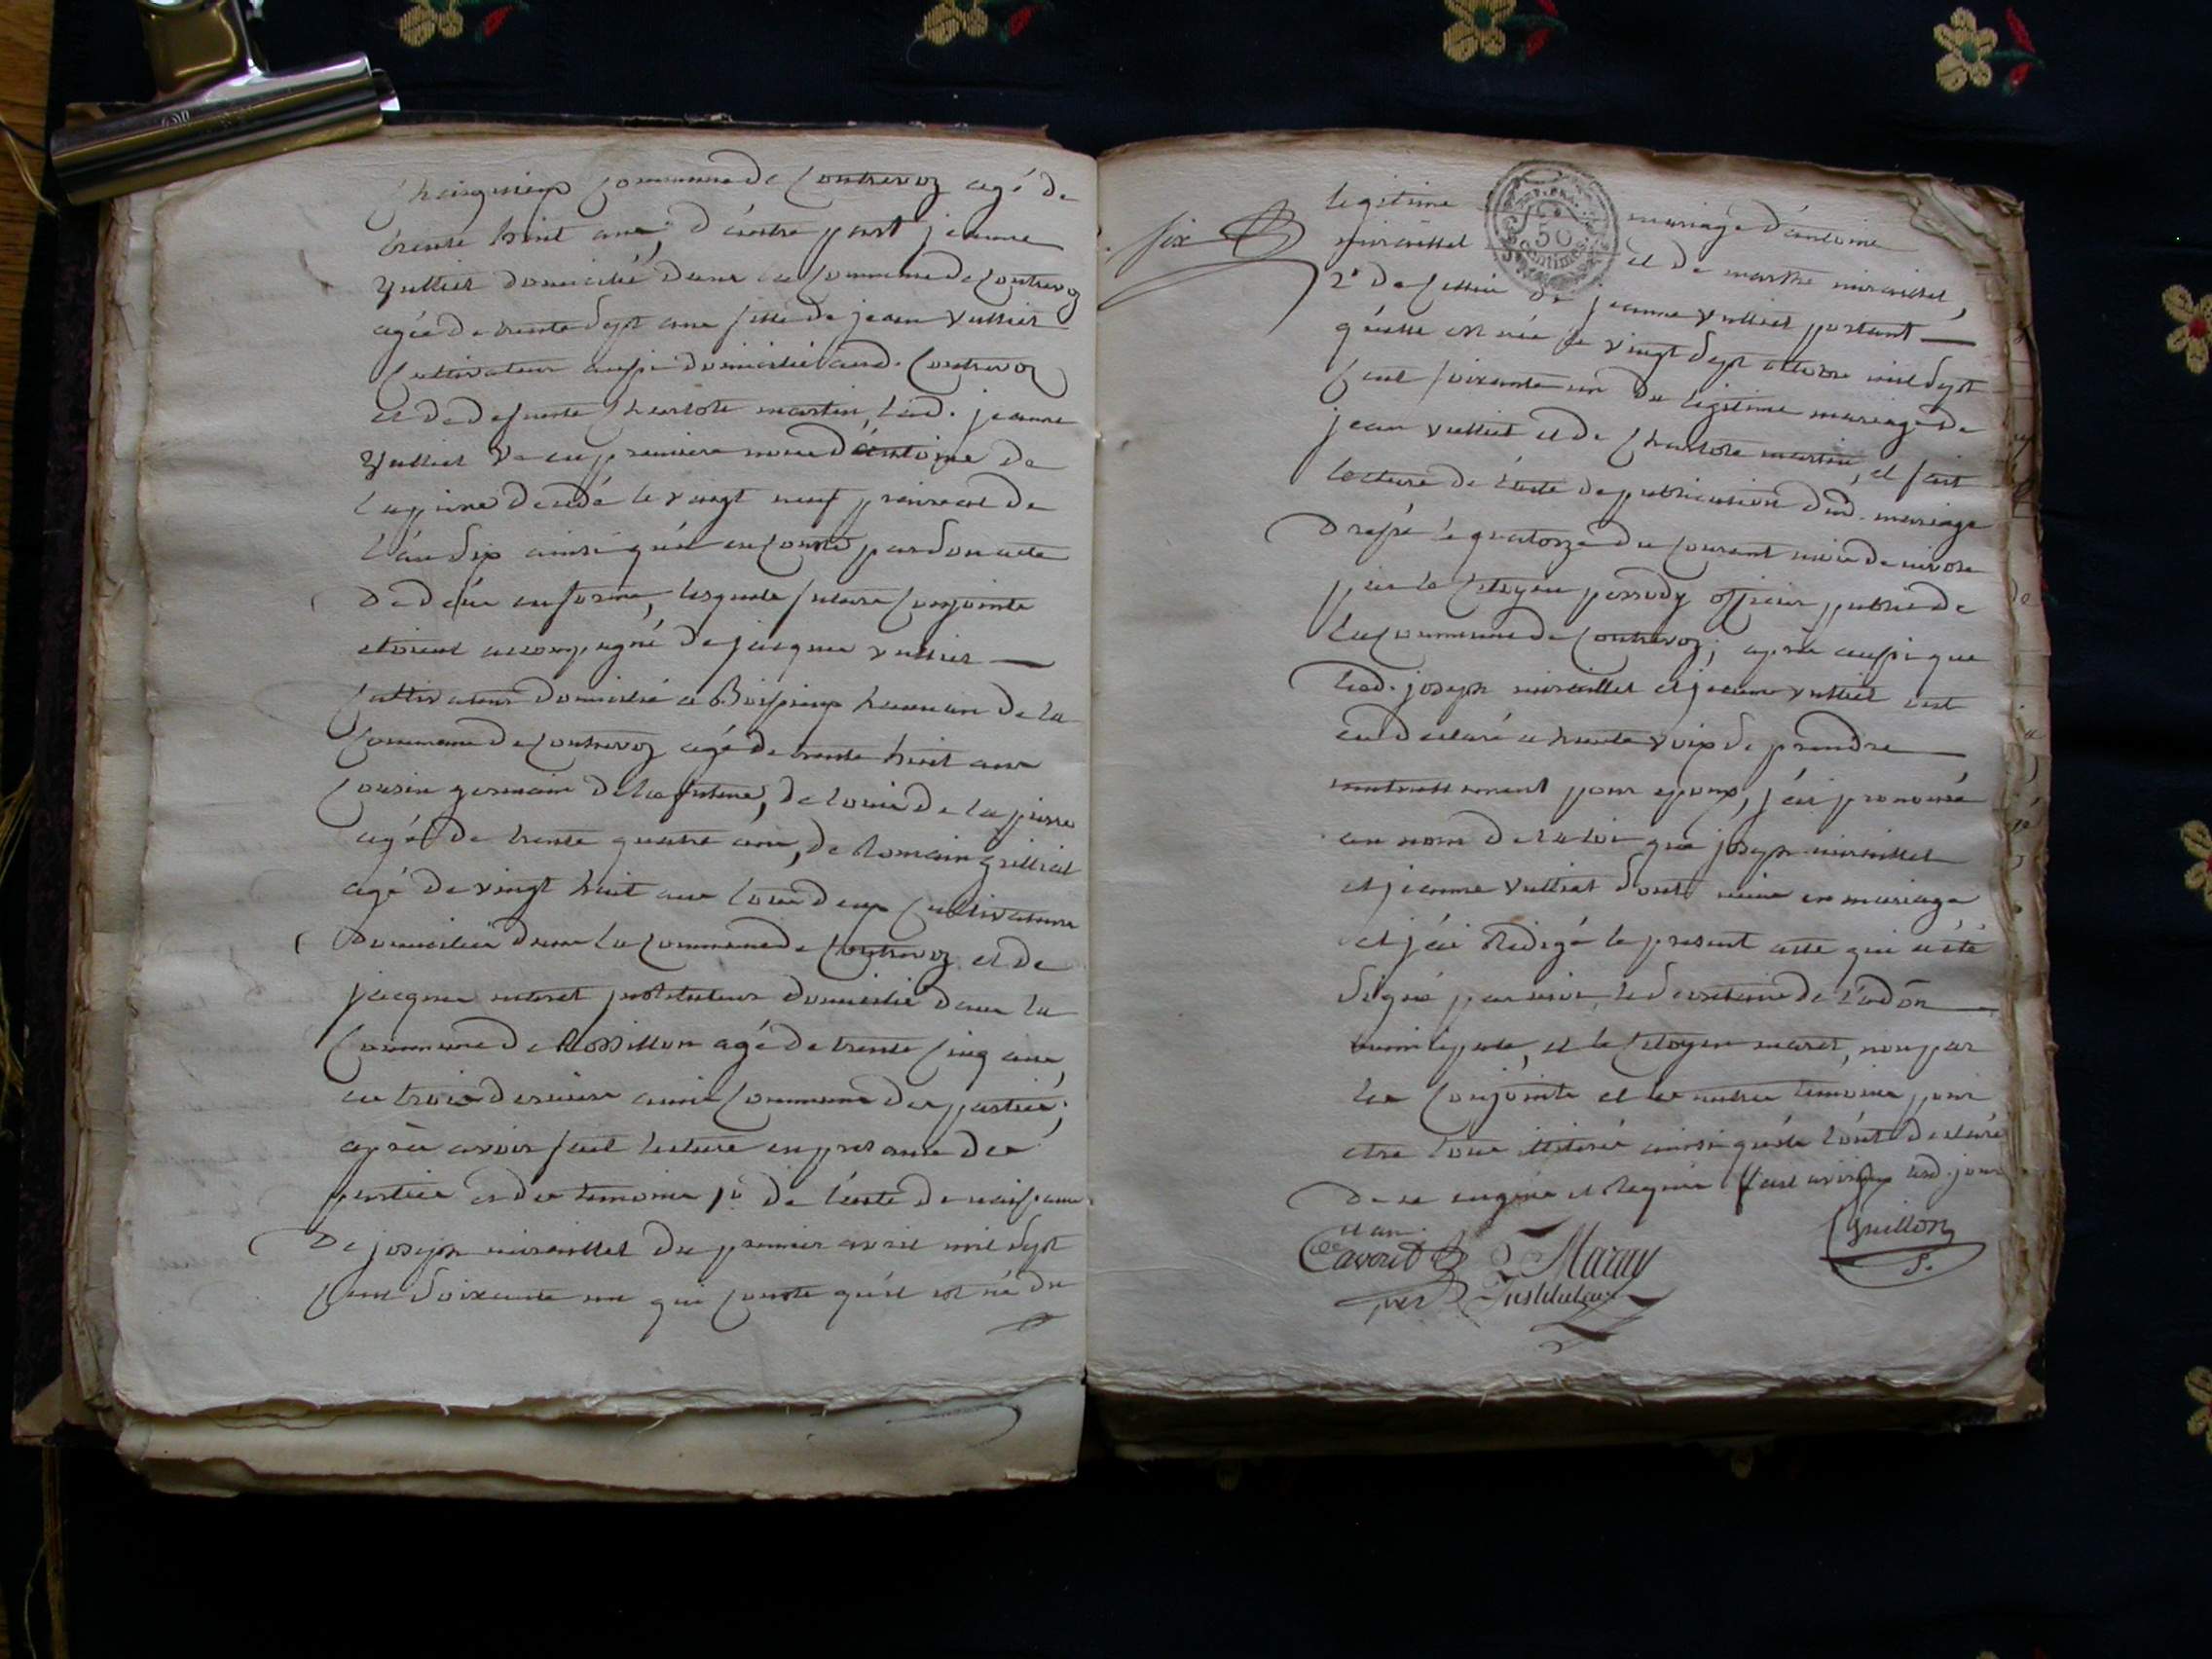 commune de Contrevoz agé de
trente huit ans; d'autre part jeanne
Vulliet domicilié dans la Commune de Contrevoz
agée de trente sept ans fille de jean Vulliet
Cultivateur aussi domicilié aud. Contrevoz
et de defunte Charlote martin, lad. jeanne
Vulliet Ve en premiere noce d'antoine de
lapierre decedé le vingt neuf prairial de
l'an dix ainsi qu'il en conste par son acte
de decès en forme, lesquels futurs conjoints
etoient accompagné de jacques Vulliet
Cultivateur domicilié a Boissieux hameau de la
Commune de Contrevoz agé de trente huit ans
Cousin germain de la future, de louis de la pierre
agé de trente quatre ans, de Romain grilliet
agé de vingt huit ans tous deux Cultivateurs
domiciliés dans la Commune de Contrevoz et de
jacques maret jnstituteur domicilié dans la
Commune de Rossillon agé de trente cinq ans,
ces trois derniers amis communs des parties;
après avoir fait lecture en presence des
parties et des temoins 1º de l'acte de naissance
de joseph miraillet du premier avril mil sept
Cent soixante un qui conste qu'il est né du
six
legitime mariage d'antoine
miraillet et de marthe miraillet,
50
2º de celui de jeanne Vulliet portant
qu'elle est née le vingt sept octobre mil sept
Cent soixante un du legitime mariage de
jean Vulliet et de Charlote martin, et fait
lecture de l'acte de publication dud. mariage
dressé le quatorze du courant mois de nivose
par le Citoyen perrody officier public de
la Commune de Contrevoz; après aussi que
led. joseph miraillet et jeanne Vulliet ont
eu declaré a haute voix de prendre
mutuellement pour epoux, j'ai prononcé
au nom de la loi que joseph miraillet
et jeanne Vulliet sont unis en mariage
et j'ai Redigé le present acte qui a été
signé par moi, le secretaire de l'adon
municipale, et le Citoyen maret, non par
les Conjoints et les autres temoins pour
etre tous illiterés ainsi qu'ils l'ont declaré
de ce enquis et Requis fait a virieux lesd. jour
et an.
Cavoret Maray Guillon
Instituteur S.